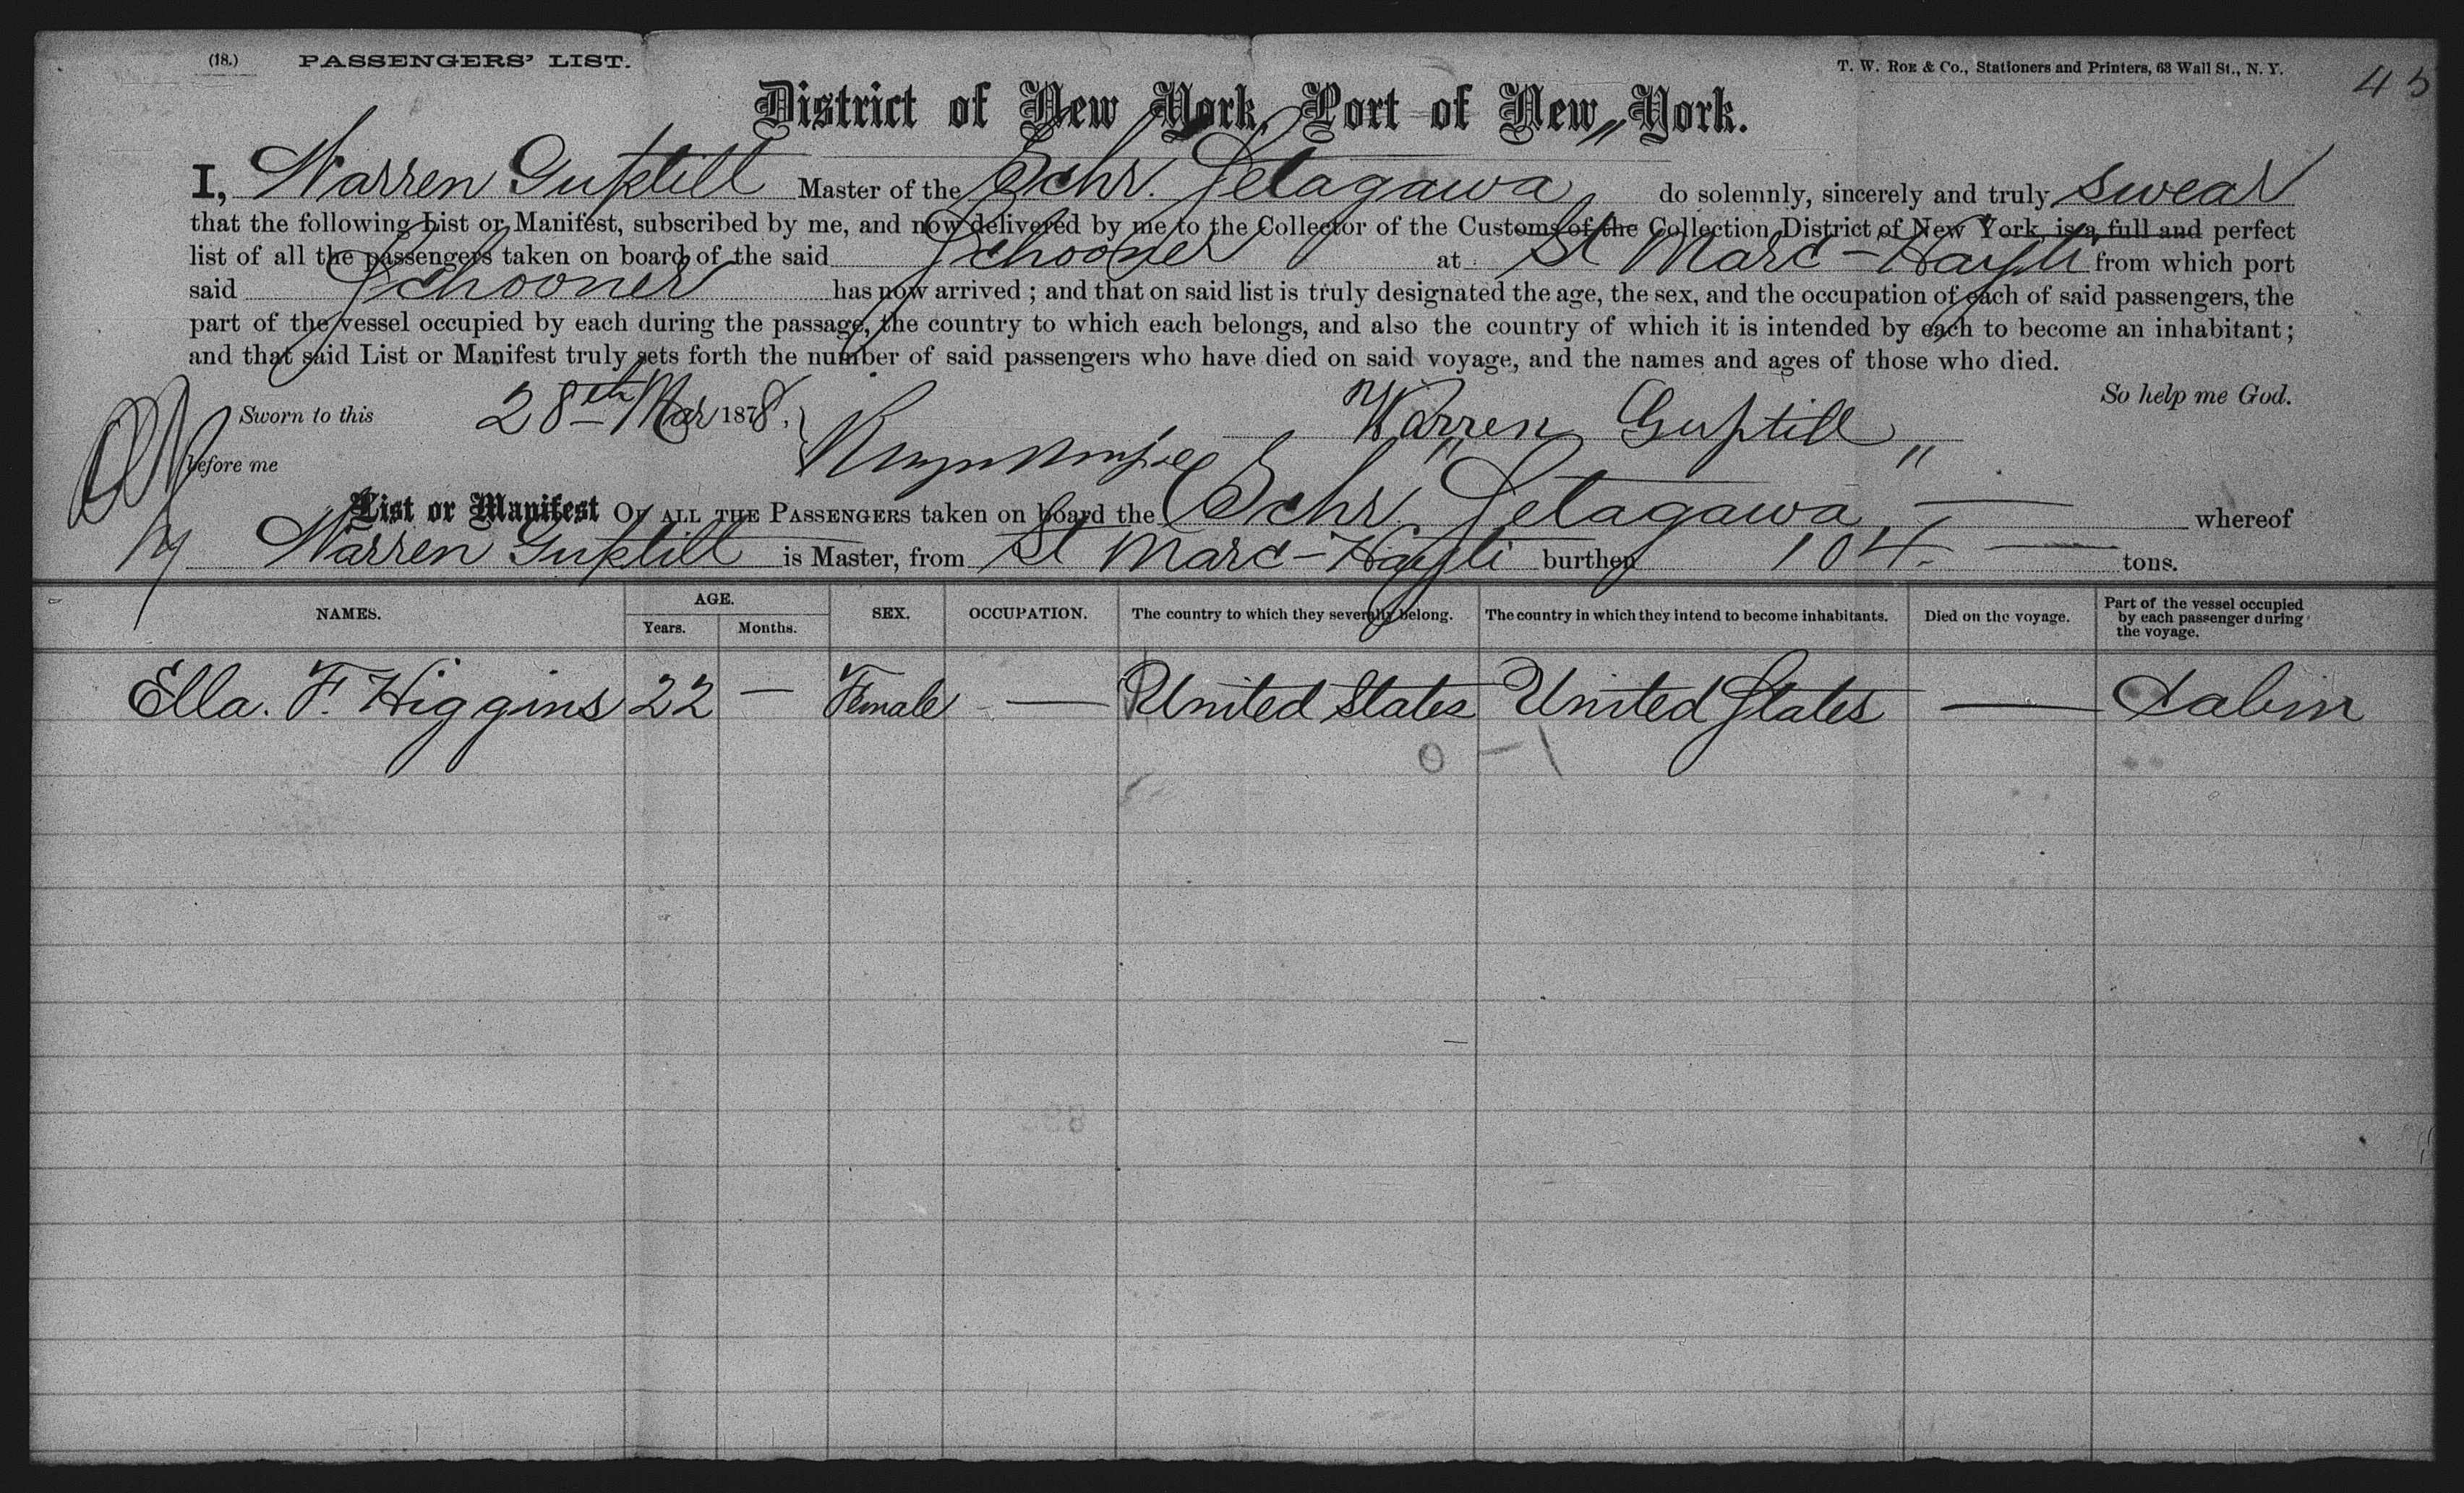 (18.) PASSENGERS' LIST.
T. W. Roe & Co., Stationers and Printers, 63 Wall St., N. Y.
45
District of New York, Port of New York.
I, Warren Guptill Master of the Schr. Setagawa do solemnly, sincerely and truly swear
that the following List or Manifest, subscribed by me, and now delivered by me to the Collector of the Customs of the Collection District of New York, is a full and perfect
list of all the passengers taken on board of the said Schooner at St Marc - Hayti from which port
said Schooner has now arrived ; and that on said list is truly designated the age, the sex, and the occupation of each of said passengers, the
part of the vessel occupied by each during the passage, the country to which each belongs, and also the country of which it is intended by each to become an inhabitant;
and that said List or Manifest truly sets forth the number of said passengers who have died on said voyage, and the names and ages of those who died.
So help me God.
Sworn to this 28th Mar 1878, Warren Guptill
before me
List or Manifest OF ALL THE PASSENGERS taken on board the Schr. Setagawa whereof
Warren Guptill is Master, from St Marc - Hayti burthen 104. tons.
NAMES. AGE. Years. Months. SEX. OCCUPATION. The country to which they severally belong. The country in which they intend to become inhabitants. Died on the voyage. Part of the vessel occupied by each passenger during the voyage.
Ella. F. Higgins 22 — Female — United States United States — Cabin
0 - 1